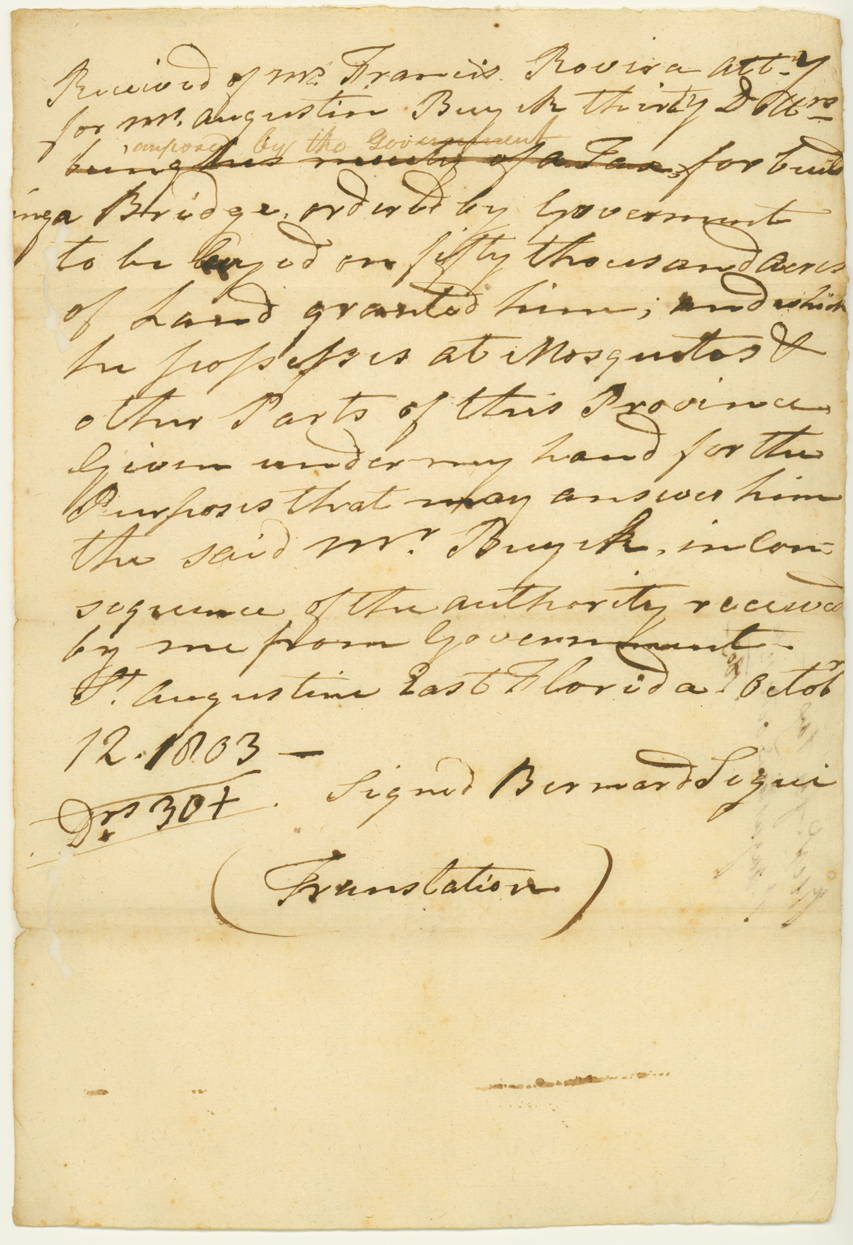 Received of Mr. Francis Rovira Att.y
for Mr. Augustin Buyck thirty Dollrs
imposed by the Government
being his of a Tax, for build
ing a Bridge, ordered by Goverment
to be layed on fifty thousand acres
of Land granted him; and which
he possesses at Mosquetos &
other Parts of this Province
Given under my hand for the
Purposes that may answer him
the said Mr. Buyck, in Con-
sequence of the authority received
by me from Government.
St. Augustine East Florida. Octob
12. 1803 —
Signed Bernard Segui
Drs 30+
(Translation)